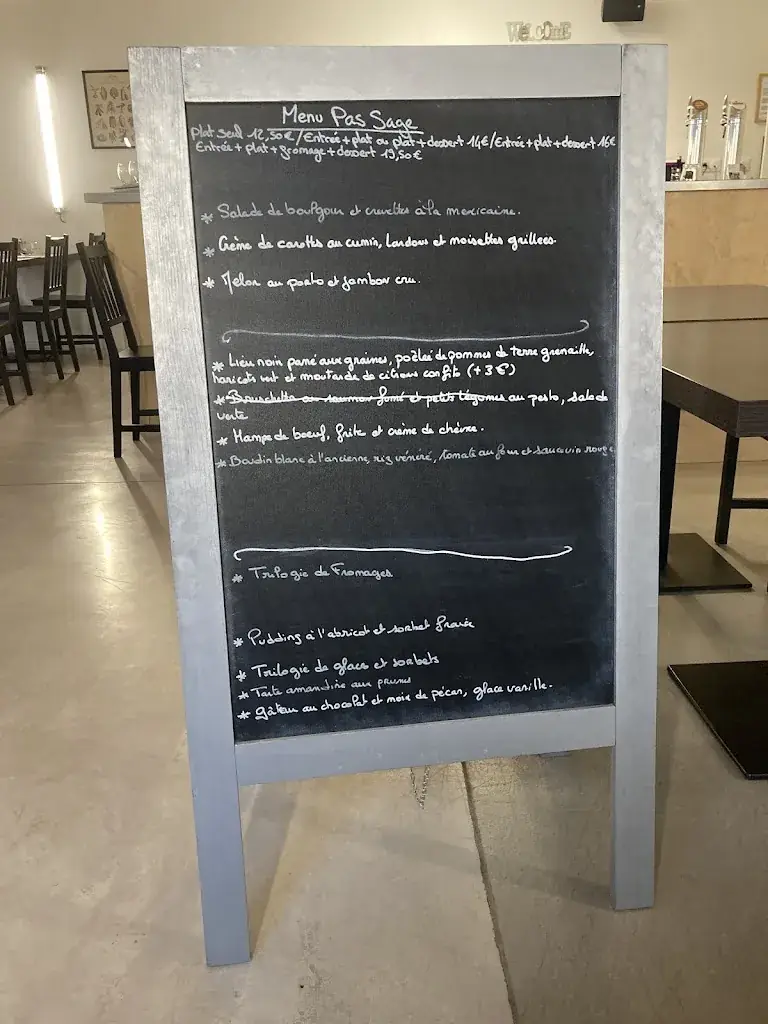 WELCOME
Menu Pas Sage
plat seul 12,50€/Entrée+plat ou plat+dessert 14€/Entrée+plat+dessert 16€
Entrée+plat+fromage+dessert 19,50€
* Salade de boulgour et crevettes à la mexicaine.
* Crème de carottes au cumin, lardons et noisettes grillées.
* Melon au porto et jambon cru.
* Lieu noir pané aux graines, poêlée de pommes de terre grenaille,
haricots vert et moutarde de citrons confits (+3€)
* Bruschetta au saumon fumé et petits légumes au pesto, salade
verte
* Hampe de boeuf, frite et crème de chèvre.
* Boudin blanc à l'ancienne, riz vénéré, tomate au four et sauce vin rouge
* Trilogie de Fromages
* Pudding à l'abricot et sorbet fraise
* Trilogie de glaces et sorbets
* Tarte amandine aux prunes
* Gâteau au chocolat et noix de pécan, glace vanille.